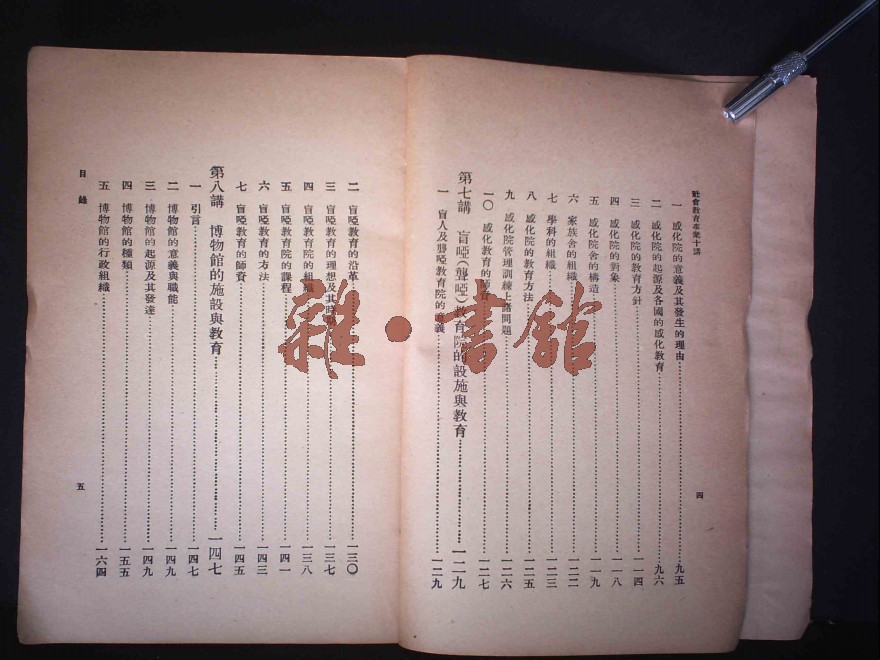 社會教育事業十講
一 感化院的意義及其發生的理由 九五
二 感化院的起源及各國的感化教育 九六
三 感化院的教育方針 一一四
四 感化院的對象 一一八
五 感化院舍的構造 一一九
六 家族舍的組織 一二二
七 學科的組織 一二三
八 感化院的教育方法 一二五
九 感化院管理訓練上諸問題 一二六
一〇 感化教育的師資 一二七
第七講 盲啞(聾啞)教育院的設施與教育 一二九
一 盲人及聾啞教育院的意義 一二九
四
二 盲啞教育的沿革 一三〇
三 盲啞教育的理想及其時 一三七
四 盲啞教育院的組織 一三八
五 盲啞教育院的課程 一四一
六 盲啞教育的方法 一四三
七 盲啞教育的師資 一四五
第八講 博物館的施設與教育 一四七
一 引言 一四七
二 博物館的意義與職能 一四九
三 博物館的起源及其發達 一四九
四 博物館的種類 一五五
五 博物館的行政組織 一六四
目錄
五
雜·書館